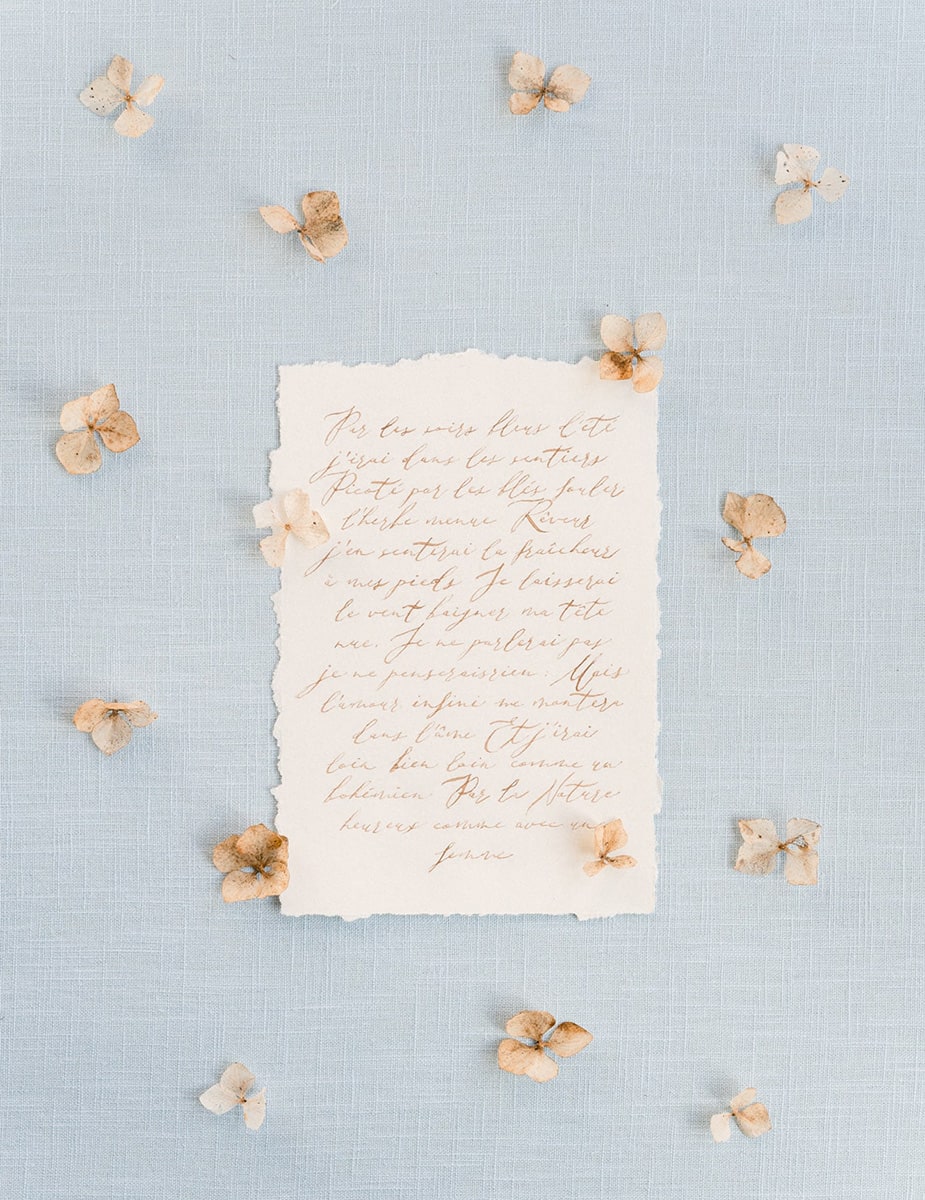 Par les soirs bleus l'été
j'irai dans les sentiers
Picoté par les blés fouler
l'herbe menue Rêveur
j'en sentirai la fraîcheur
à mes pieds Je laisserai
le vent baigner ma tête
nue. Je ne parlerai pas
je ne penseraisrien : Mais
l'amour infini me montera
dans l'âme Et j'irai
loin bien loin comme un
bohémien Par la Nature
heureux comme avec une
femme